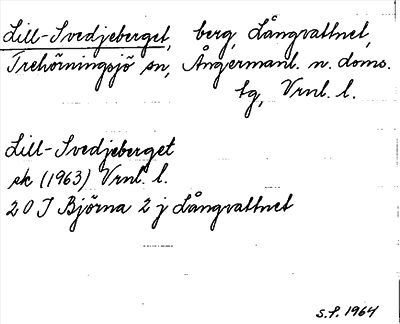 Lill-Svedjeberget, berg, Långvattnet,
Trehörningsjö sn, Ångermanl. n. doms.
tg, Vrnl. l.
Lill-Svedjeberget
sk (1963) Vrnl. l.
20 I Björna 2 j Långvattnet
S.F. 1964